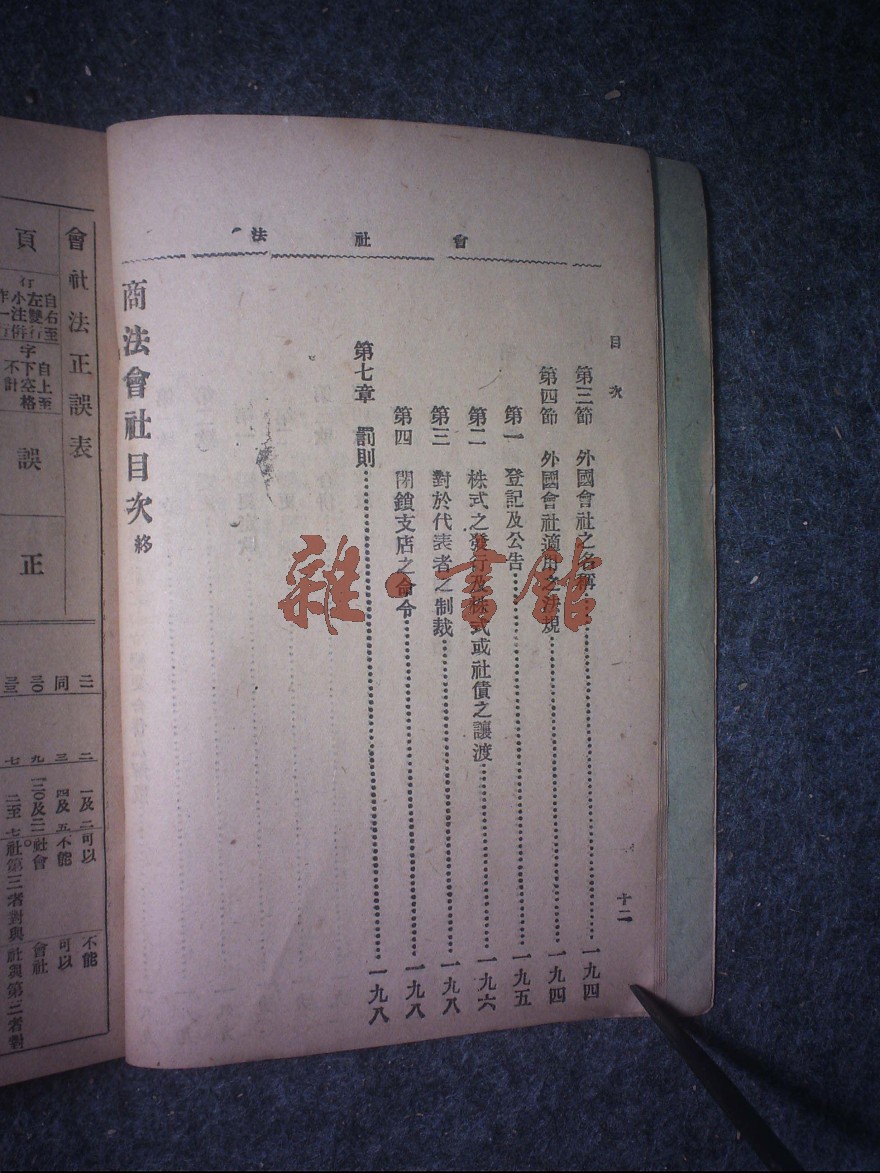 會社法
目次
十二
第三節　外國會社之名稱一九四
第四節　外國會社適用之法規一九四
第一　登記及公告一九五
第二　株式之發行及株式或社債之讓渡一九六
第三　對於代表者之制裁一九八
第四　閉鎖支店之命令一九八
第七章　罰則一九八
商法會社目次終
雜·書館
會社法正誤表
頁
行
自右至左雙行小注併作一行
字
自上至下空格不計
誤
正
二
一及二
可以
不能
同
三
四及五
不能
可以
九
社會
會社
七
二至七
社第三者對與
社與第三者對